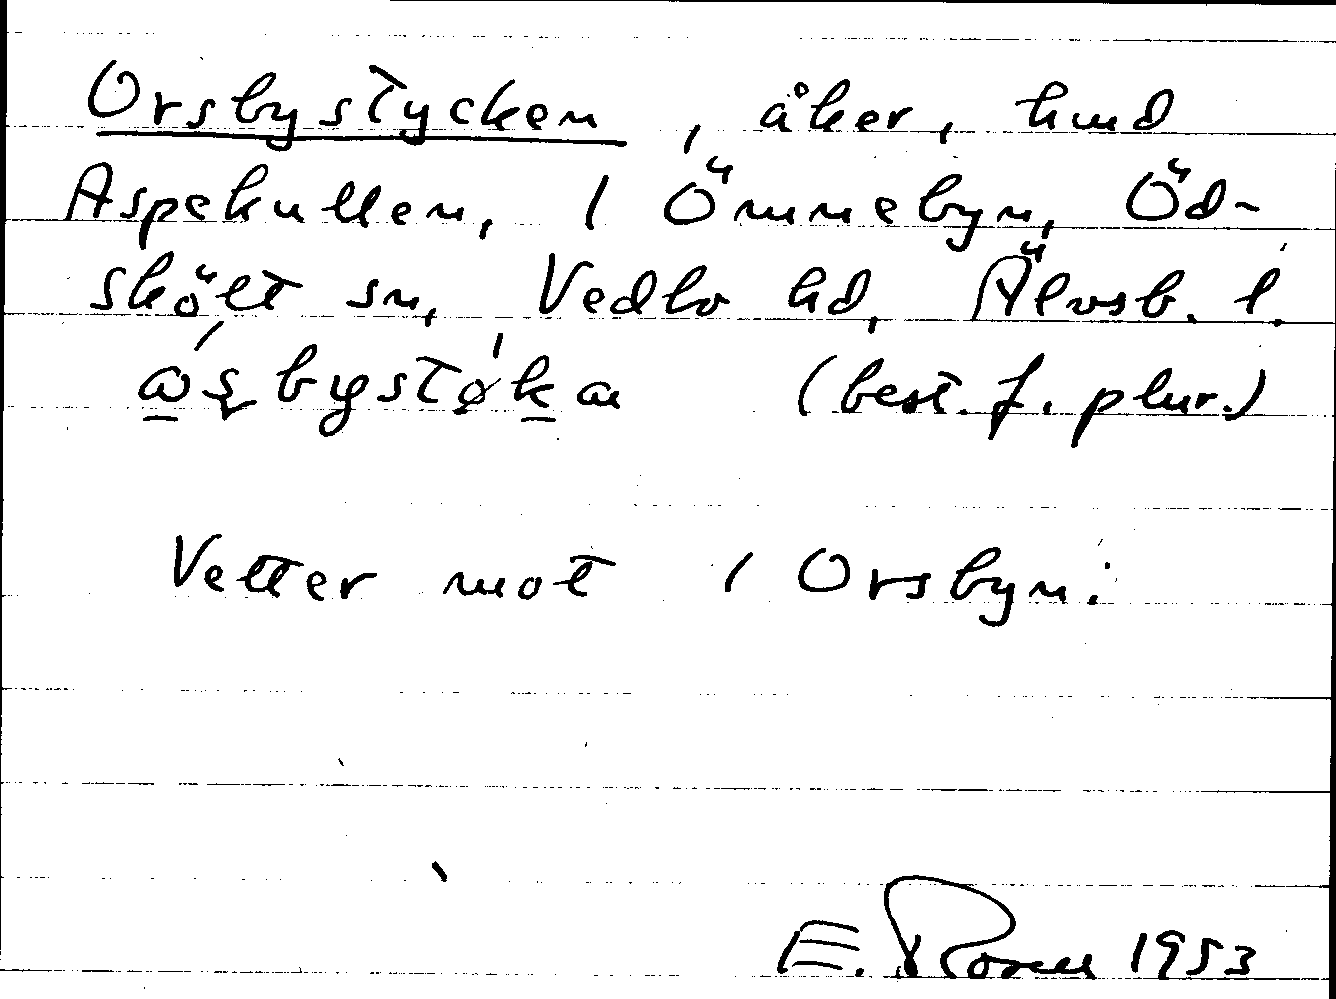 Orsbystycken, åker, hmd
Aspekullen, 1 Ömmebyn, Öd-
skölt sn, Vedbo hd, Älvsb. l.
(best. f. plur.)
Vetter mot 1 Orsbyn.
E. Rosell 1953